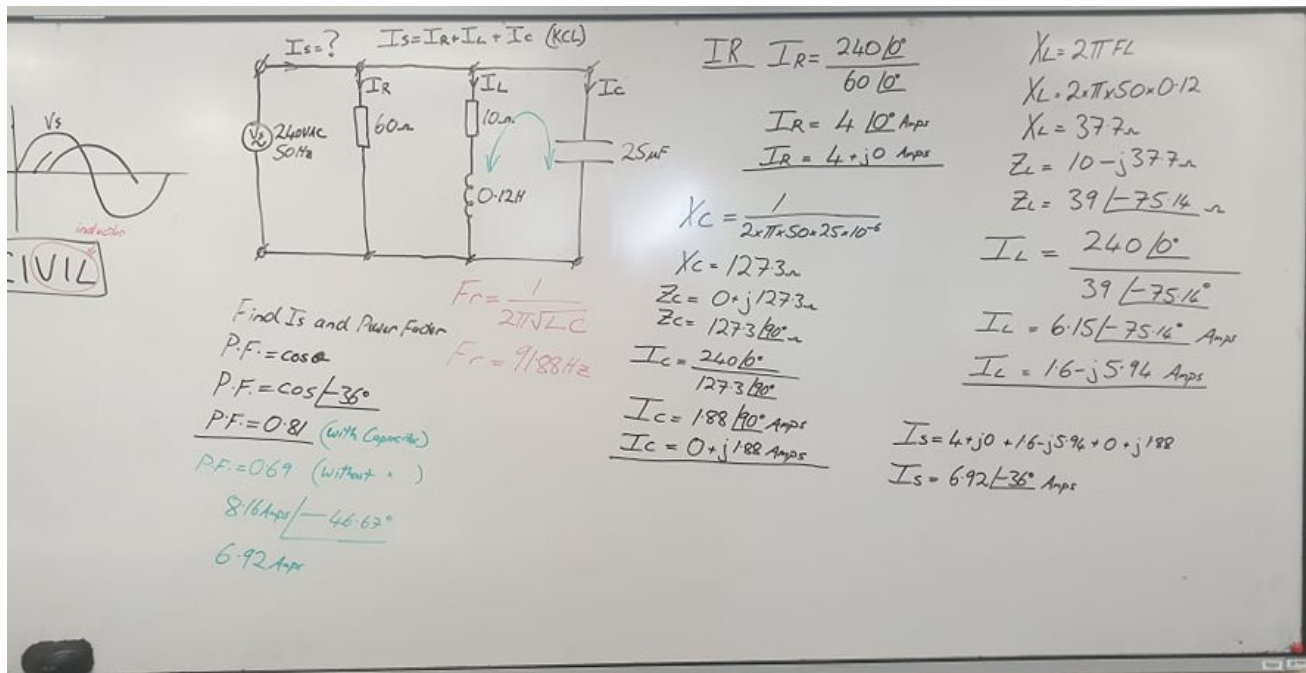 Is=?
Is=IR+IL+Ic (KCL)
IR
IL
Ic
Vs
Vs
240VAC
50Hz
60Ω
10Ω
0.12H
25µF
inductor
CIVIL
Find Is and Power Factor
P.F.=cosθ
P.F.=cos∠-36°
P.F.=0.81 (with Capacitor)
P.F.=0.69 (without " )
8.16Amps∠-46.67°
6.92Amps
Fr= 1/2π√LC
Fr=91.88Hz
IR
IR= 240∠0°/60∠0°
IR= 4∠0° Amps
IR= 4+j0 Amps
Xc= 1/2×π×50×25×10⁻⁶
Xc=127.3Ω
Zc= 0+j127.3Ω
Zc= 127.3∠90°Ω
Ic= 240∠0°/127.3∠90°
Ic= 1.88∠90° Amps
Ic= 0+j1.88 Amps
XL=2πFL
XL=2×π×50×0.12
XL= 37.7Ω
ZL= 10-j37.7Ω
ZL= 39∠-75.14 Ω
IL= 240∠0°/39∠-75.14°
IL= 6.15∠-75.14° Amps
IL= 1.6-j5.94 Amps
Is=4+j0+1.6-j5.94+0+j1.88
Is= 6.92∠-36° Amps